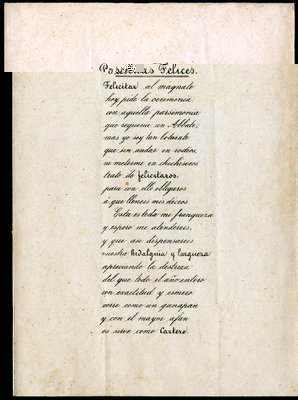 Felices.
Felicitar al magnate
hoy pide la ceremonia
con aquella parsimonia
que requeria un Abbate;
mas yo soy tan botarate
que sin andar en rodeos,
ni meterme en chichisveos
trato de felicitaros,
para con ello obligaros
á que lleneis mis deseos.
Esta es toda mi franqueza
y espero me atendereis,
y que asi dispensareis
vuestra hidalguia y largueza
apreciando la destreza
del que todo el año entero
con exactitud y esmero
corre como un ganapan
y con el mayor afan
os sirve como Cartero.